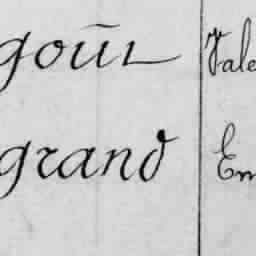 goût Vale
grand Em